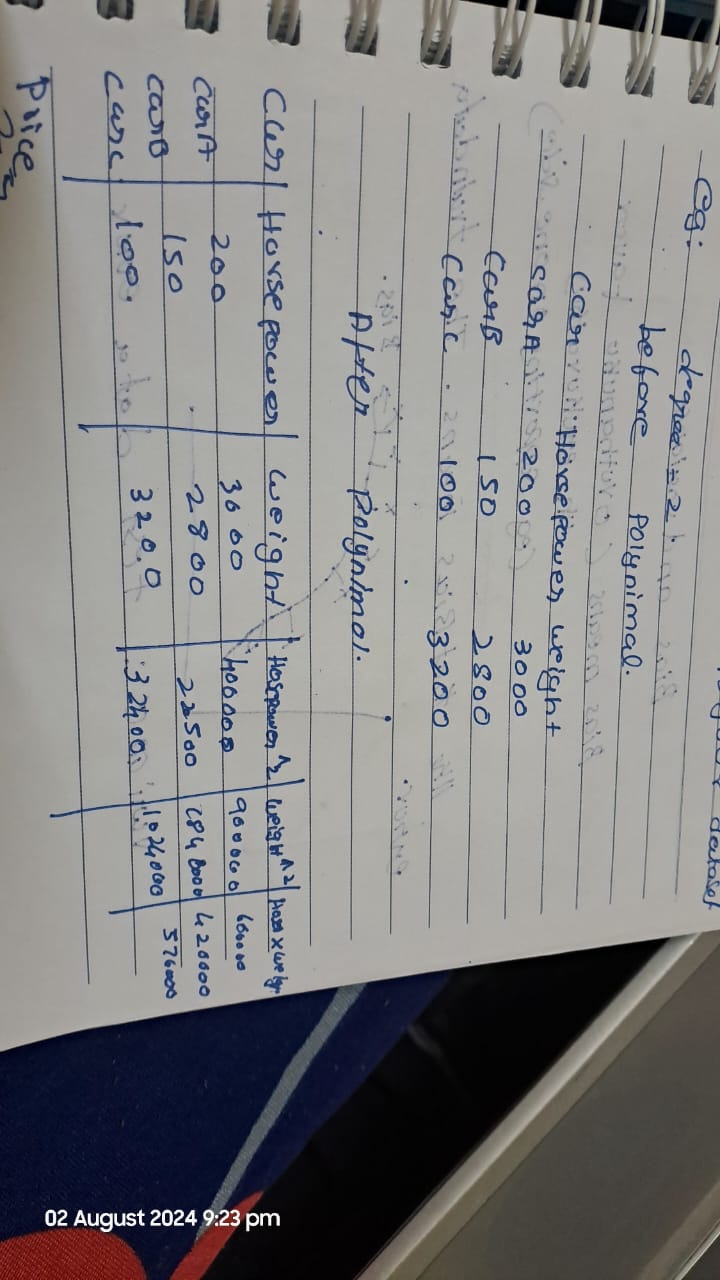 dataset
eg: degree = 2.
before Polynimal.
Car Horsepower weight
CarA 200 3000
CarB 150 2800
CarC 100 3200
After Polynimol.
Car Horsepower weight Hosepower^2 weight^2
CarA 200 3000 400000 900000 600000
CarB 150 2800 22500 420000
CarC 100. 3200 32400 1024000 576000
Price
02 August 2024 9:23 pm